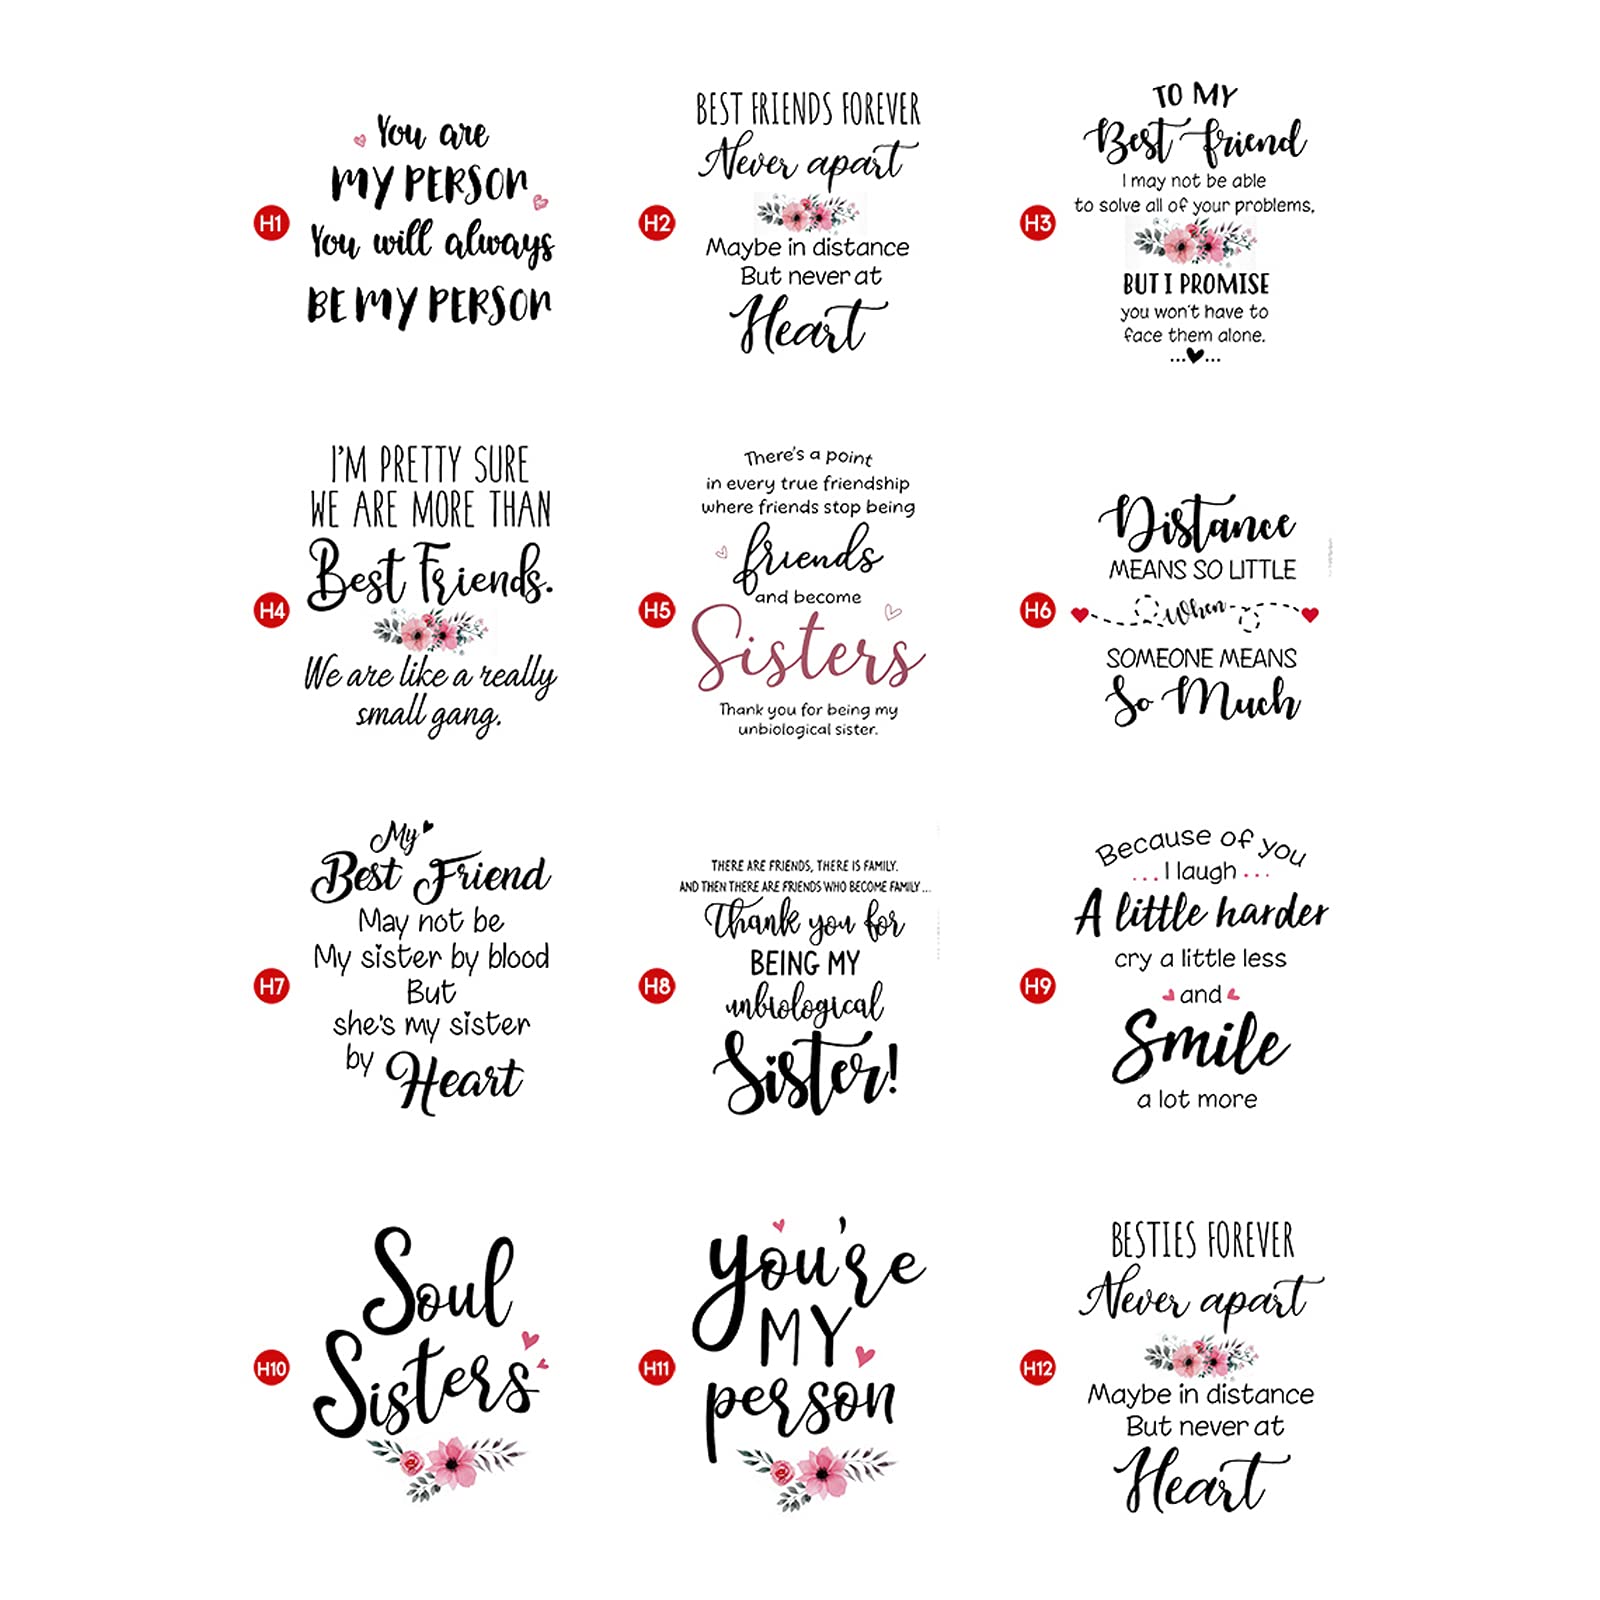 H1
You are
MY PERSON
You will always
BE MY PERSON
H2
BEST FRIENDS FOREVER
Never apart
Maybe in distance
But never at
Heart
H3
TO MY
Best friend
I may not be able
to solve all of your problems,
BUT I PROMISE
you won't have to
face them alone.
...♥...
H4
I'M PRETTY SURE
WE ARE MORE THAN
Best Friends.
We are like a really
small gang.
H5
There's a point
in every true friendship
where friends stop being
friends
and become
Sisters
Thank you for being my
unbiological sister.
H6
Distance
MEANS SO LITTLE
When
SOMEONE MEANS
So Much
H7
My
Best Friend
May not be
My sister by blood
But
she's my sister
by Heart
H8
THERE ARE FRIENDS, THERE IS FAMILY.
AND THEN THERE ARE FRIENDS WHO BECOME FAMILY...
Thank you for
BEING MY
unbiological
Sister!
H9
Because of you
... I laugh ...
A little harder
cry a little less
and
Smile
a lot more
H10
Soul
Sisters
H11
you're
MY
person
H12
BESTIES FOREVER
Never apart
Maybe in distance
But never at
Heart